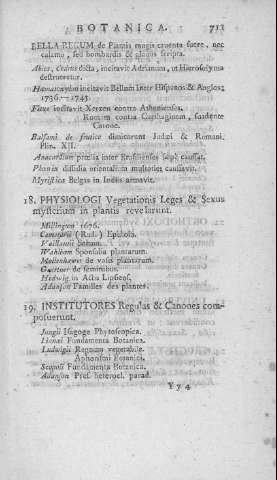 BOTANICA. 711
BELLA REGUM de Plantis magis cruenta fuere, nec
calamo, sed bombardis & gladiis scripta.
Abies, Cedrus dicta, incitavit Adrianum, ut Hierosolyma
destrueretur.
Hæmatoxylon incitavit Bellum inter Hispanos & Anglos;
1736. — 1745.
Ficus incitavit Xerxen contra Athenienses.
Romam contra Carthaginem, suadente
Catone.
Balsami de frutice dimicarunt Judæi & Romani.
Plin. XII.
Anacardium prœlia inter Brasilienses sæpe causat.
Phœnix dissidia orientalium multoties causavit.
Myristica Belgas in Indiis armavit.
18. PHYSIOLOGI Vegetationis Leges & Sexus
mysterium in plantis revelarunt.
Millington 1676.
Camerarii (Rud.) Epistola.
Vaillantii Sermo.
Wahlbom Sponsalia plantarum.
Mollenhawer de vasis plantarum.
Gærtner de seminibus.
Hedwig in Actis Lipsiens.
Adanson Familles des plantes.
19. INSTITUTORES Regulas & Canones com-
posuerunt.
Jungii Isagoge Phytoscopica.
Linnei Fundamenta Botanica.
Ludwigii Regnum vegetabile.
Aphorismi Botanici.
Scopoli Fundamenta Botanica.
Adanson Præf. heterocl. parad.
Y y 4